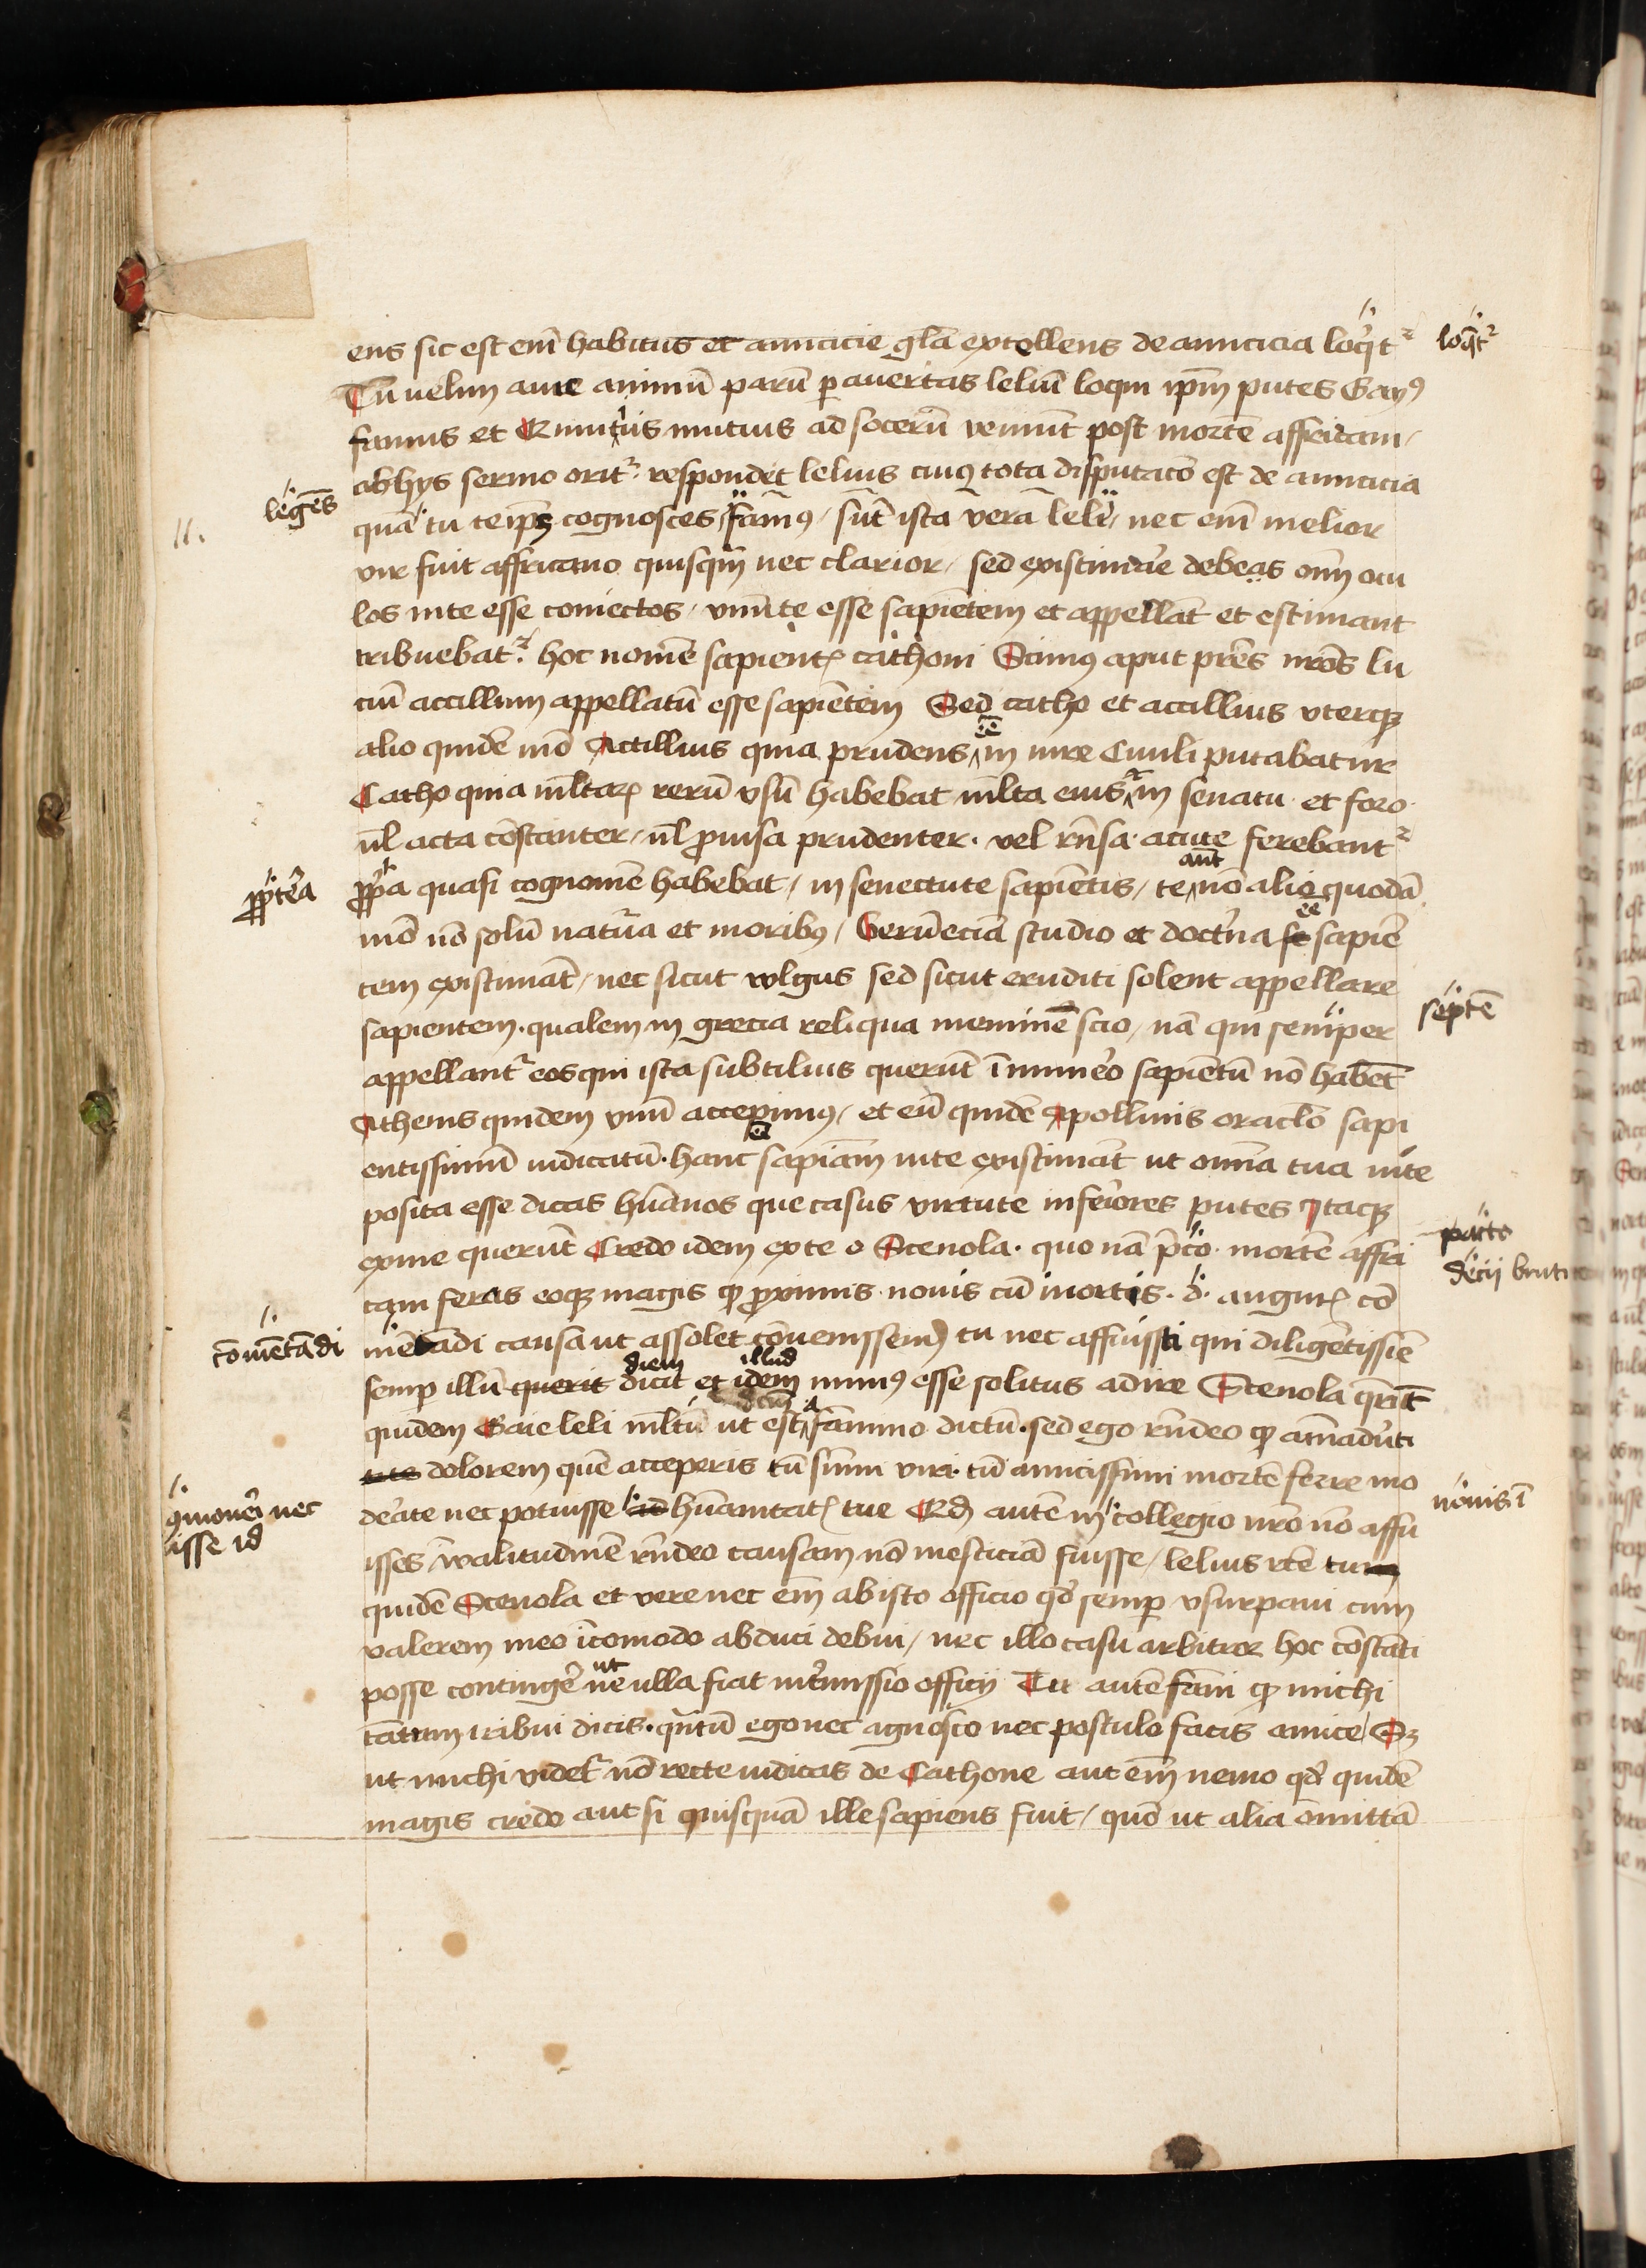 ens sic est em̄ habitus et amicicie gl̄a excellens de amicicia loq̄tr
Tu uelim a me animū parū p auertas leliū loqui ip̄m putes Gayꝰ
fanius et Quintius mucius ad socerū veniunt post mortē affricani
ab hys sermo oritr respondet lelius cuiꝰ tota disputac̄o est de amicicia
quā tu te ip̄ȝ cognosces fāniꝰ sūt ista vera leli nec em̄ melior
vir fuit affricano quisqm̄ nec clarior sed existimare debeas om̄ ocu
los in te esse coniectos vnū te esse sapiētem et appellāt et estimant
tribuebatr hoc nomē sapientꝭ cathoni Scimꝰ aput pr̄es nr̄os lu
ciū accillium appellatū esse sapiētem Sed catho et accillius vterqȝ
alio quidē mō Actillius quia prudens ēē in iure Ciuili putabatur
Catho quia ml̄tarꝝ rerū vsū habebat ml̄ta eius in senatu et foro
ul̄ acta cōstanter ul̄ ꝓuisa prudenter vel rn̄sa acute ferebantr
ꝓp̄ta quasi cognomē habebat in senectute sapiētis te aut nō alio quodā
mō nō solū natura et moribꝰ Verū eciā studio et doctͥna ēē sapiē
tem existimāt nec sicut wlgus sed sicut eruditi solent appellare
sapientem qualem in grecia reliqua neminē scio nā qui semper
appellantr eos qui ista subtilius querūt ī numero sapiētū nō habēt
Athenis quidem vnū accepimꝰ et eū quidē Apollinis oracl̄o sapi
entissimū iudicatū hanc sapiām in te existimāt ut om̄ia tua in te
posita esse dicas hūanos que casus virtute inferiores putes Itaqȝ
ex me querūt Credo idem ex te o Sceuola quo nā pacto mortē affri
cani feras eoqȝ magis qꝫ ꝓximis nonis cū in ortis d. augurꝭ cō
mētādi causa ut assolet cōuenissemꝰ tu nec affuisti qui diligētissīe
semp illū diem et illud munꝰ esse solitus adire Sceuola qr̄it
quidem Gaie leli ml̄tū ut est a fannio dictū sed ego rn̄deo qꝫ aīmaduerti
dolorem quē acceperis tū sūmi viri tū amicissimi mortē ferre mo
derate nec potuisse hūanitatꝭ tue Qd̄ autē in collegio nr̄o nō affu
isses walitudinē rn̄deo causam nō mesticiā fuisse lelius rc̄te tu
quidē Sceuola et vere nec em̄ ab isto officio qd̄ semp vsurpaui cum
valerem meo īcomodo abduci debui nec illo casu arbitror hoc cōstāti
posse contingere ut ulla fiat int̄missio officij Tu autē fāni qꝫ michi
tantum tribui dicis qn̄tū ego nec agnosco nec postulo facis amice Sȝ
ut michi videtr nō recte iudicas de Cathone aut em̄ nemo qd̄ quidē
magis credo aut si quisquā ille sapiens fuit quō ut alia omittā
loq̄tr
legēs
ꝓpterea
septē
pacto
decij bruti
cōmētādi
ꝯmoueri nec
isse id
nonis ī